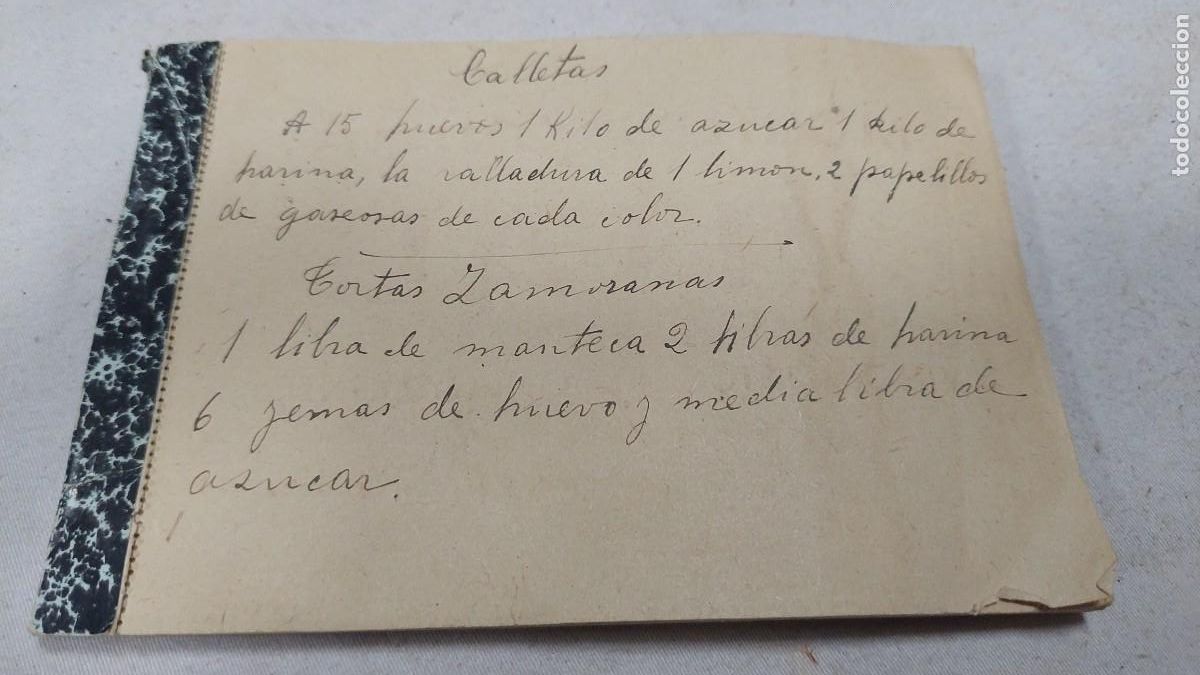 Calletas
A 15 huevos 1 Kilo de azucar 1 kilo de
harina, la ralladura de 1 limon, 2 papelillos
de gaseosas de cada color.
Tortas Zamoranas
1 libra de manteca 2 libras de harina
6 yemas de huevo y media libra de
azucar.
todocoleccion